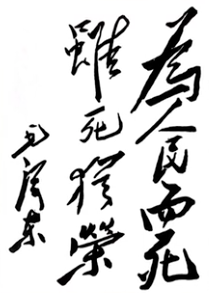 為人民而死
雖死猶榮
毛澤东